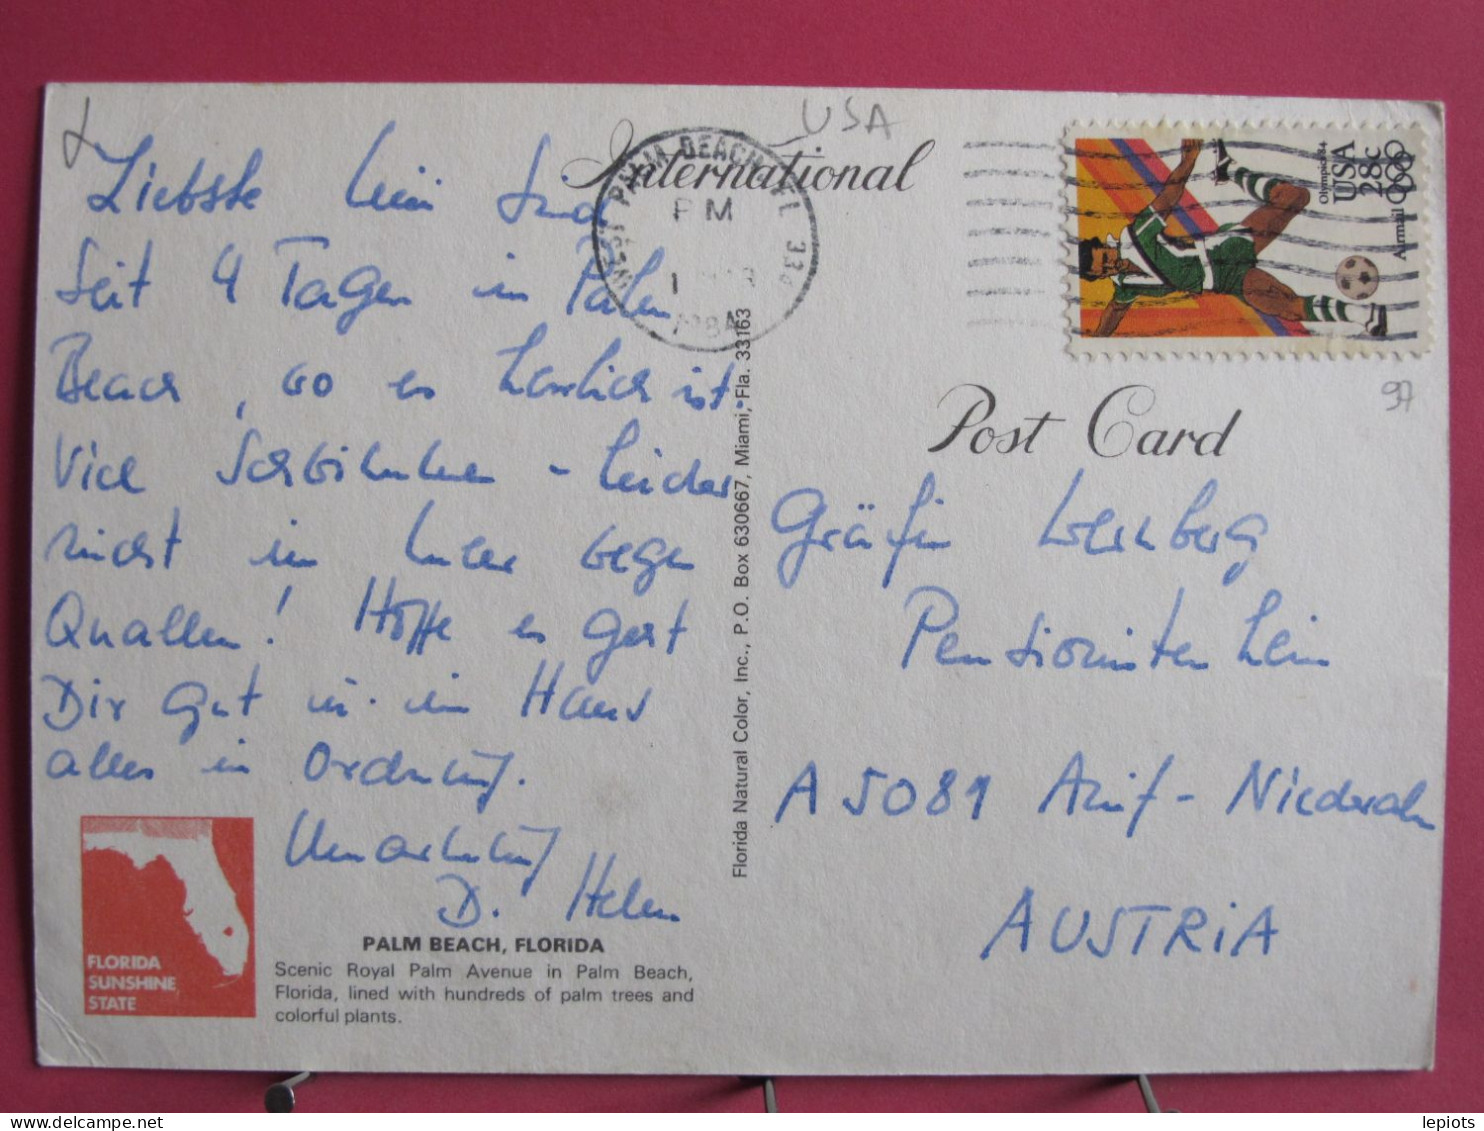 USA
International
WEST PALM BEACH, FL 334
PM
1984
Olympics 84
USA
28c
Airmail
97
Post Card
Liebste
Seit 4 Tagen in Palm
Beach, wo es herrlich ist.
Viel Schwimmen - leider
nicht im Meer wegen
Quallen! Hoffe es geht
Dir gut u. im Haus
alles in Ordnung.
Umarmung
D. Helen
Gräfin Wernberg
Pensionistenheim
A 5081 Anif - Niederalm
AUSTRIA
Florida Natural Color, Inc., P.O. Box 630667, Miami, Fla. 33163
FLORIDA
SUNSHINE
STATE
PALM BEACH, FLORIDA
Scenic Royal Palm Avenue in Palm Beach,
Florida, lined with hundreds of palm trees and
colorful plants.
lepiots